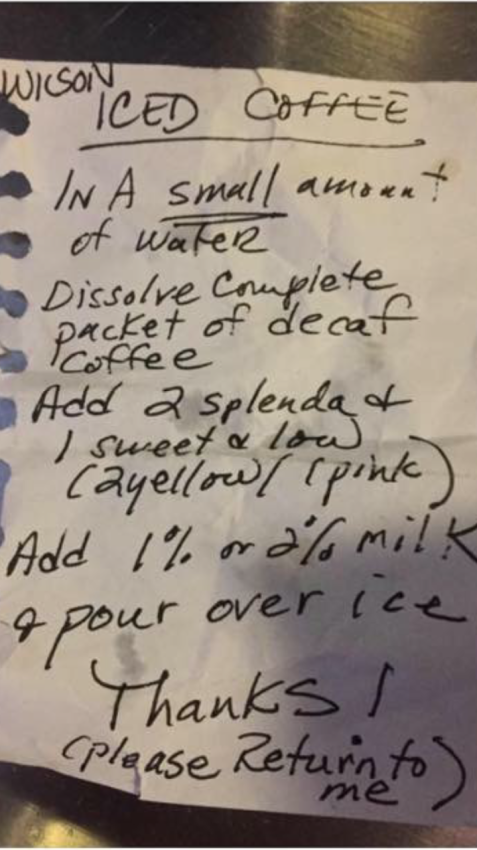 WILSON
ICED COFFEE
IN A small amount
of water
Dissolve Complete
packet of decaf
coffee
Add 2 splenda &
1 sweet & low
(2yellow/1pink)
Add 1% or 2% milk
& pour over ice
Thanks!
(please Return to
me)